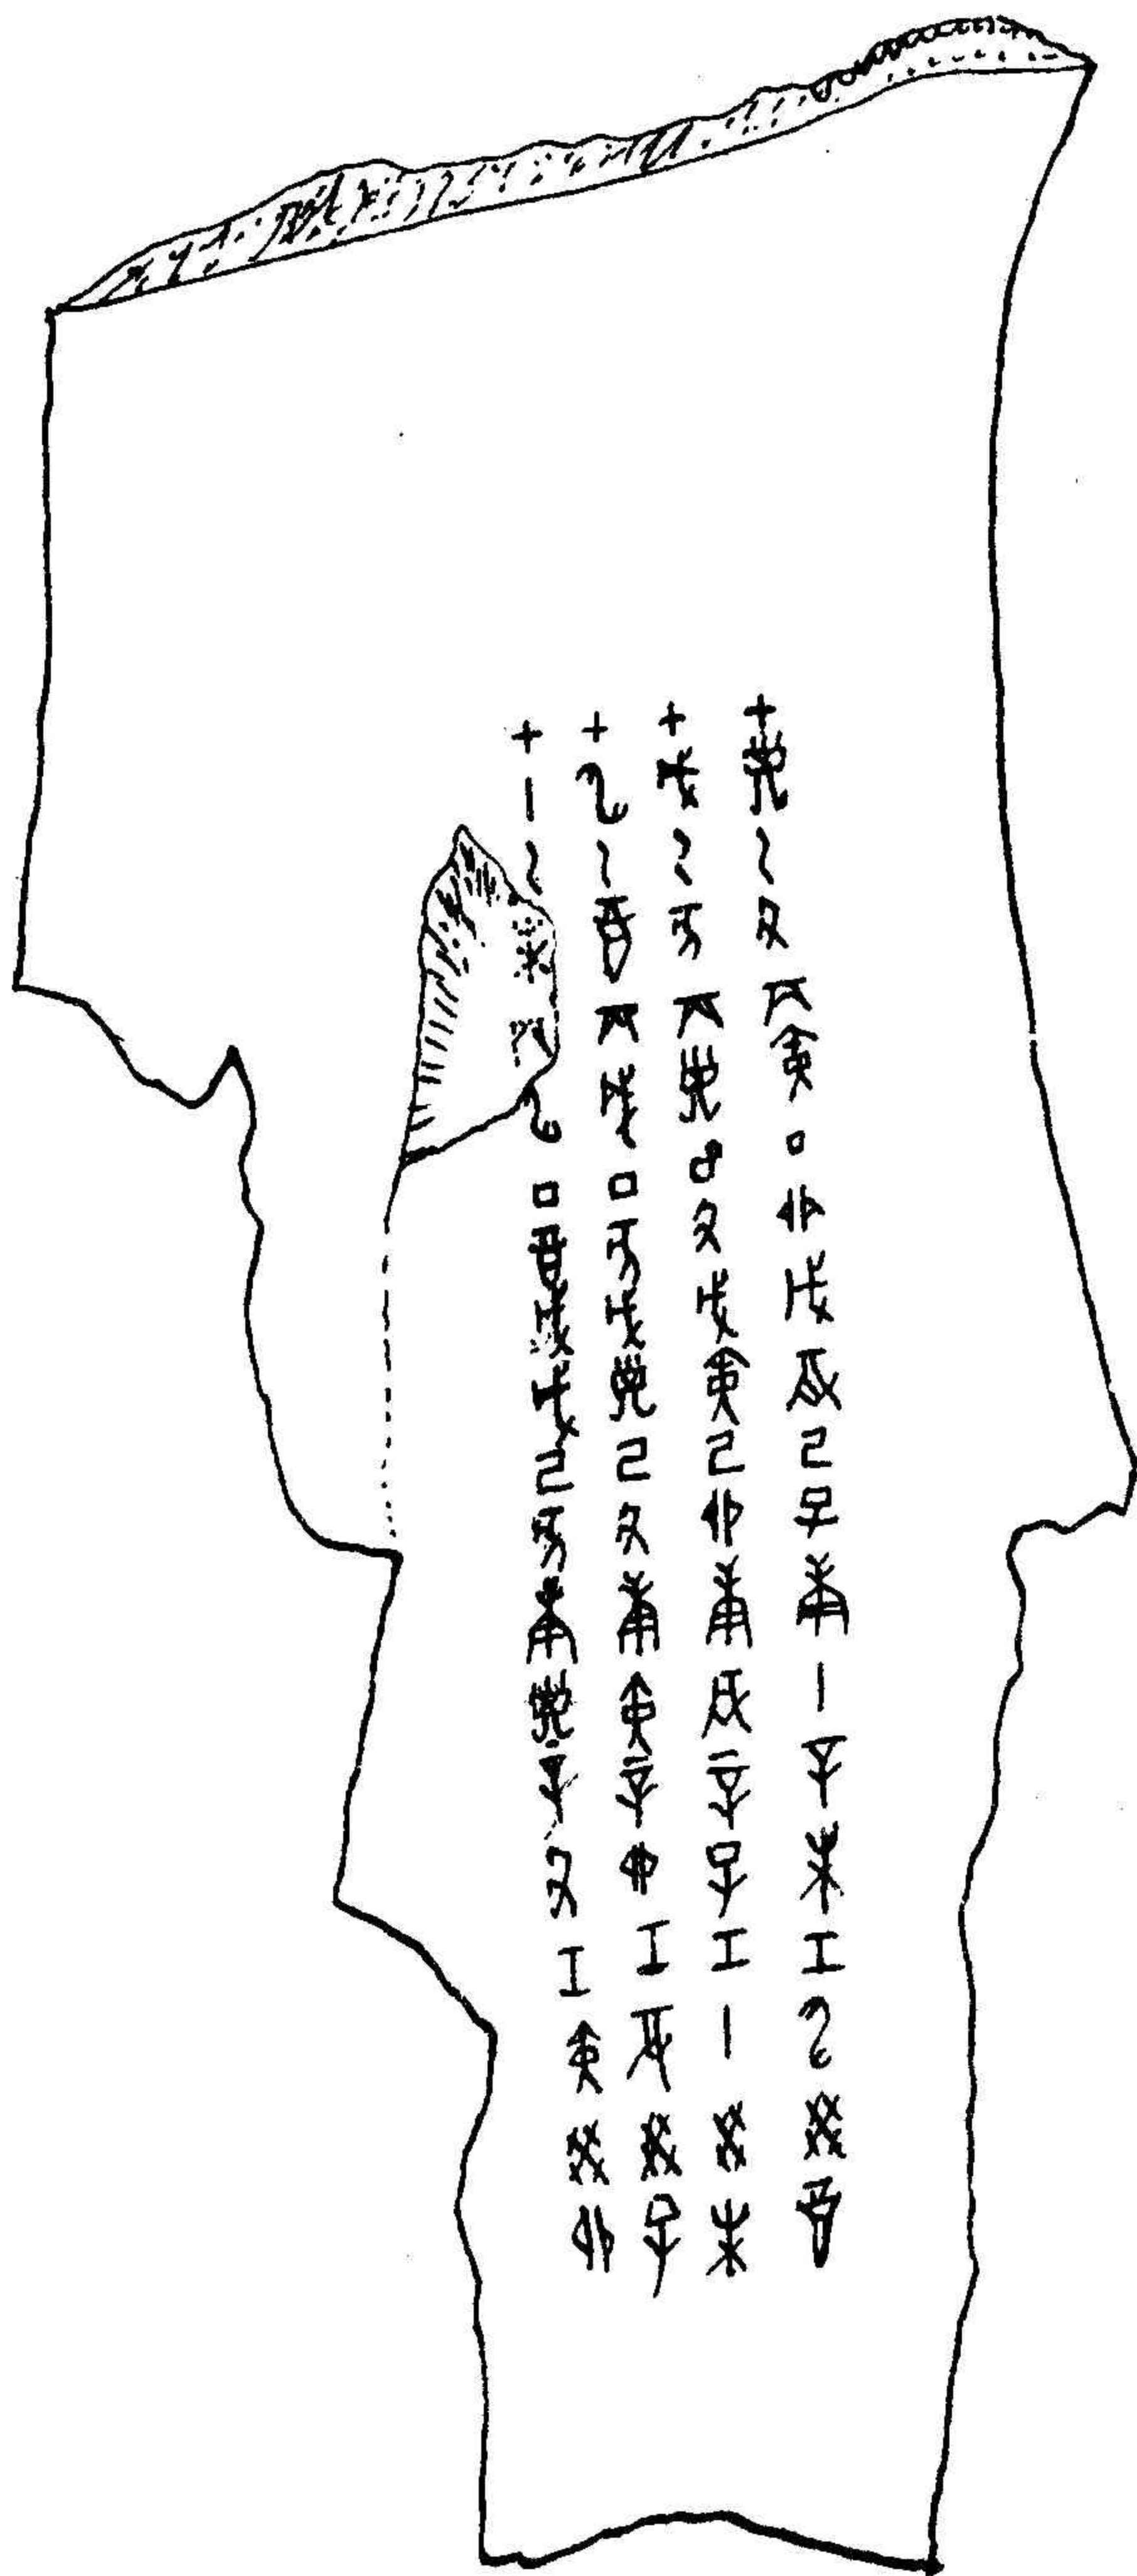 甲子乙丑丙寅丁卯戊辰己巳庚午辛未壬申癸酉
甲戌乙亥丙子丁丑戊寅己卯庚辰辛巳壬午癸未
甲申乙酉丙戌丁亥戊子己丑庚寅辛卯壬辰癸巳
甲午乙未丙申丁酉戊戌己亥庚子辛丑壬寅癸卯